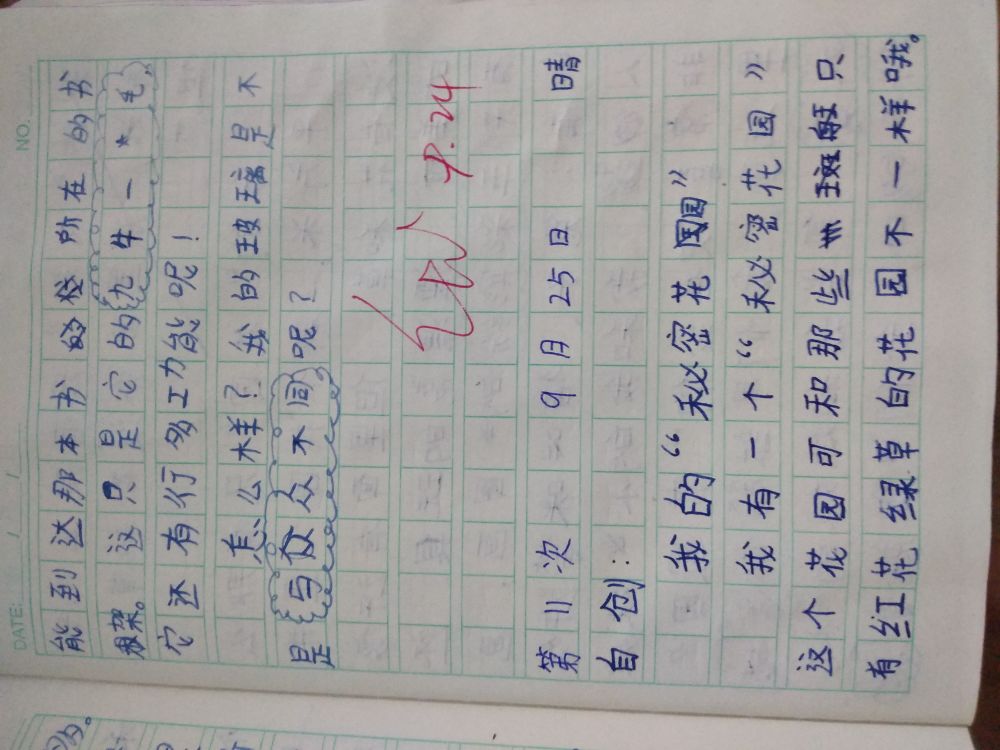 DATE: / / NO.
能到达那本书的所在的书
架。这只是它的九牛一毛。
它还有行多工力能呢！
怎么样？我的玻璃是不
是与众不同呢？
9.24
第11次 9月25日 晴
自创：
我的“秘密花园”
我有一个“秘密花园”
这个花园可和那些只
有红花绿草的花园不一样哦。